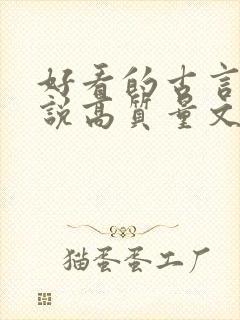 好看的古言
说高质量文
猫蛋蛋工厂